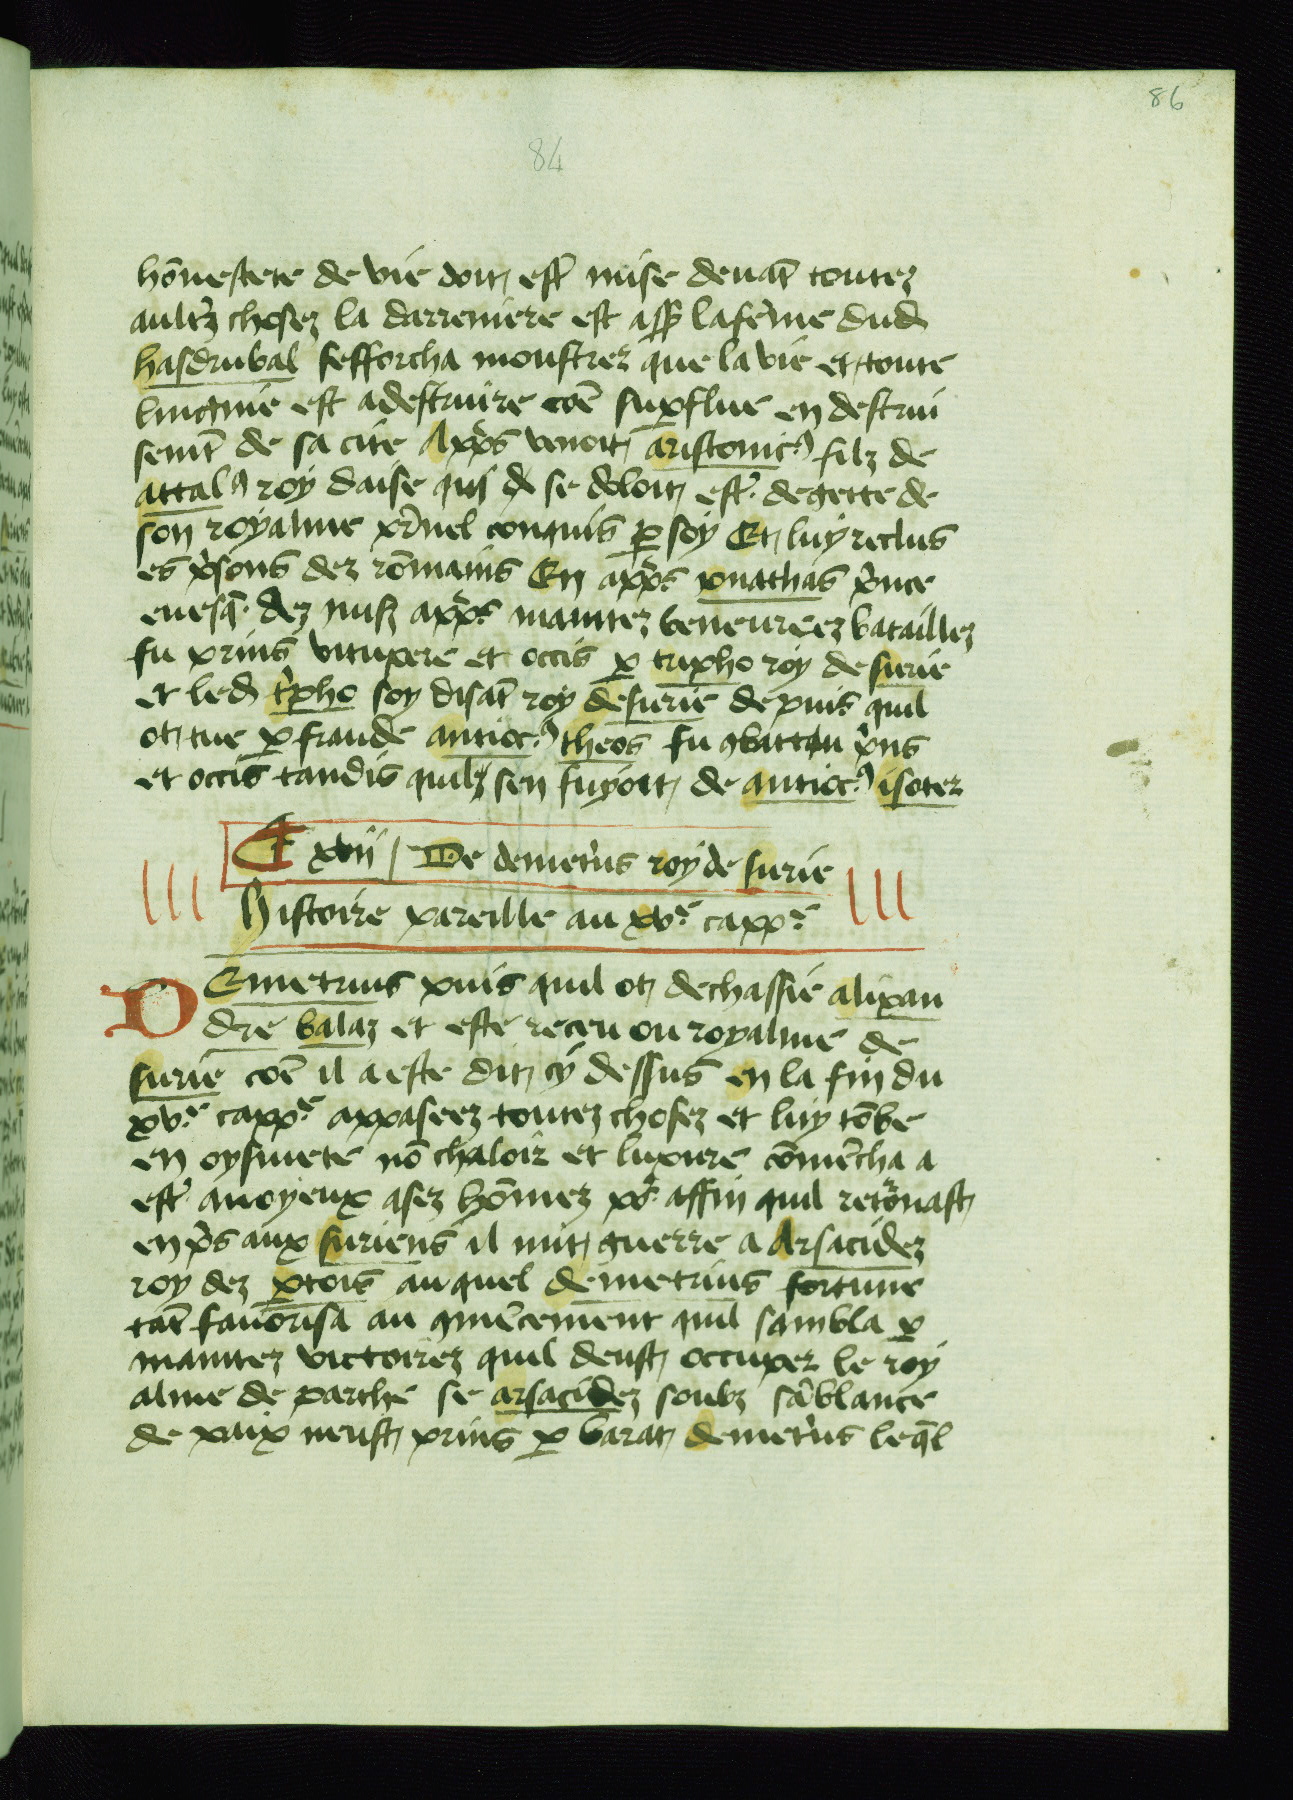 86
84
hõnestete de vie doit est̉ mise deuãt toutez
ault̉z chosez la darreniere est la feme dud
hasdrubal sefforcha monstrer que la vie et toute
lingnie est adestruire cõe sup̱flue en destrui
semt̃ de sa cite App̉s venoit aristonicꝰ filz de
attalꝰ roy daise qui se doloit est̉ degette de
son royalme conquis ꝑ soy Et luy reclus
es p̉sons dez rõmains En app̉s p̉nce
euesq̃ dez app̉s maintez beneureez bataillez
fu prins vitupere et occis ꝑ tripho roy de surie
et led t̉pho soy disãt roy de surie depuis quil
ot tue ꝑ fraude antiocꝰ theos fu ꝯbattu p̉ns
et occis tandis quilz sen fuyoit de antiocꝰ isoter
xvii De demet̉us roy de surie
histoire pareille au xv.e capp.e
DEmetrius puis quil ot dechassie alixan
dre balaz et este receu ou royalme de
surie cõe il a este dit cy dessus en la fin du
xv.e capp.e appaseez toutez chosez et luy tõbe
en oysiuete nõ chaloir et luxure cõmẽcha a
est̉ anoyeux asez hõmez affin quil retrouast
en p̉s aux suriens il mut guerre a Arsacidez
roy dez ꝑtois auquel demetrius fortune
tãt fauorisa au ꝯmẽcement quil sambla ꝑ
maintez victoirez quil deust occuper le roy
alme de parthe se arsacidez soubz sãblance
de paix neust prins ꝑ barat demet̉us leq̃l